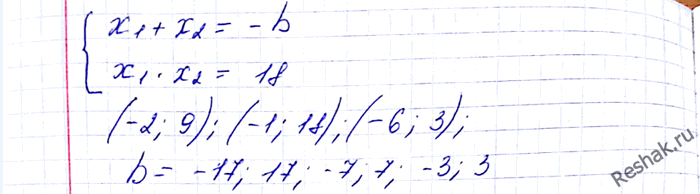 x₁ + x₂ = -b
x₁ · x₂ = 18
(-2; 9); (-1; 18); (-6; 3);
b = -17; 17; -7; 7; -3; 3
Reshak.ru